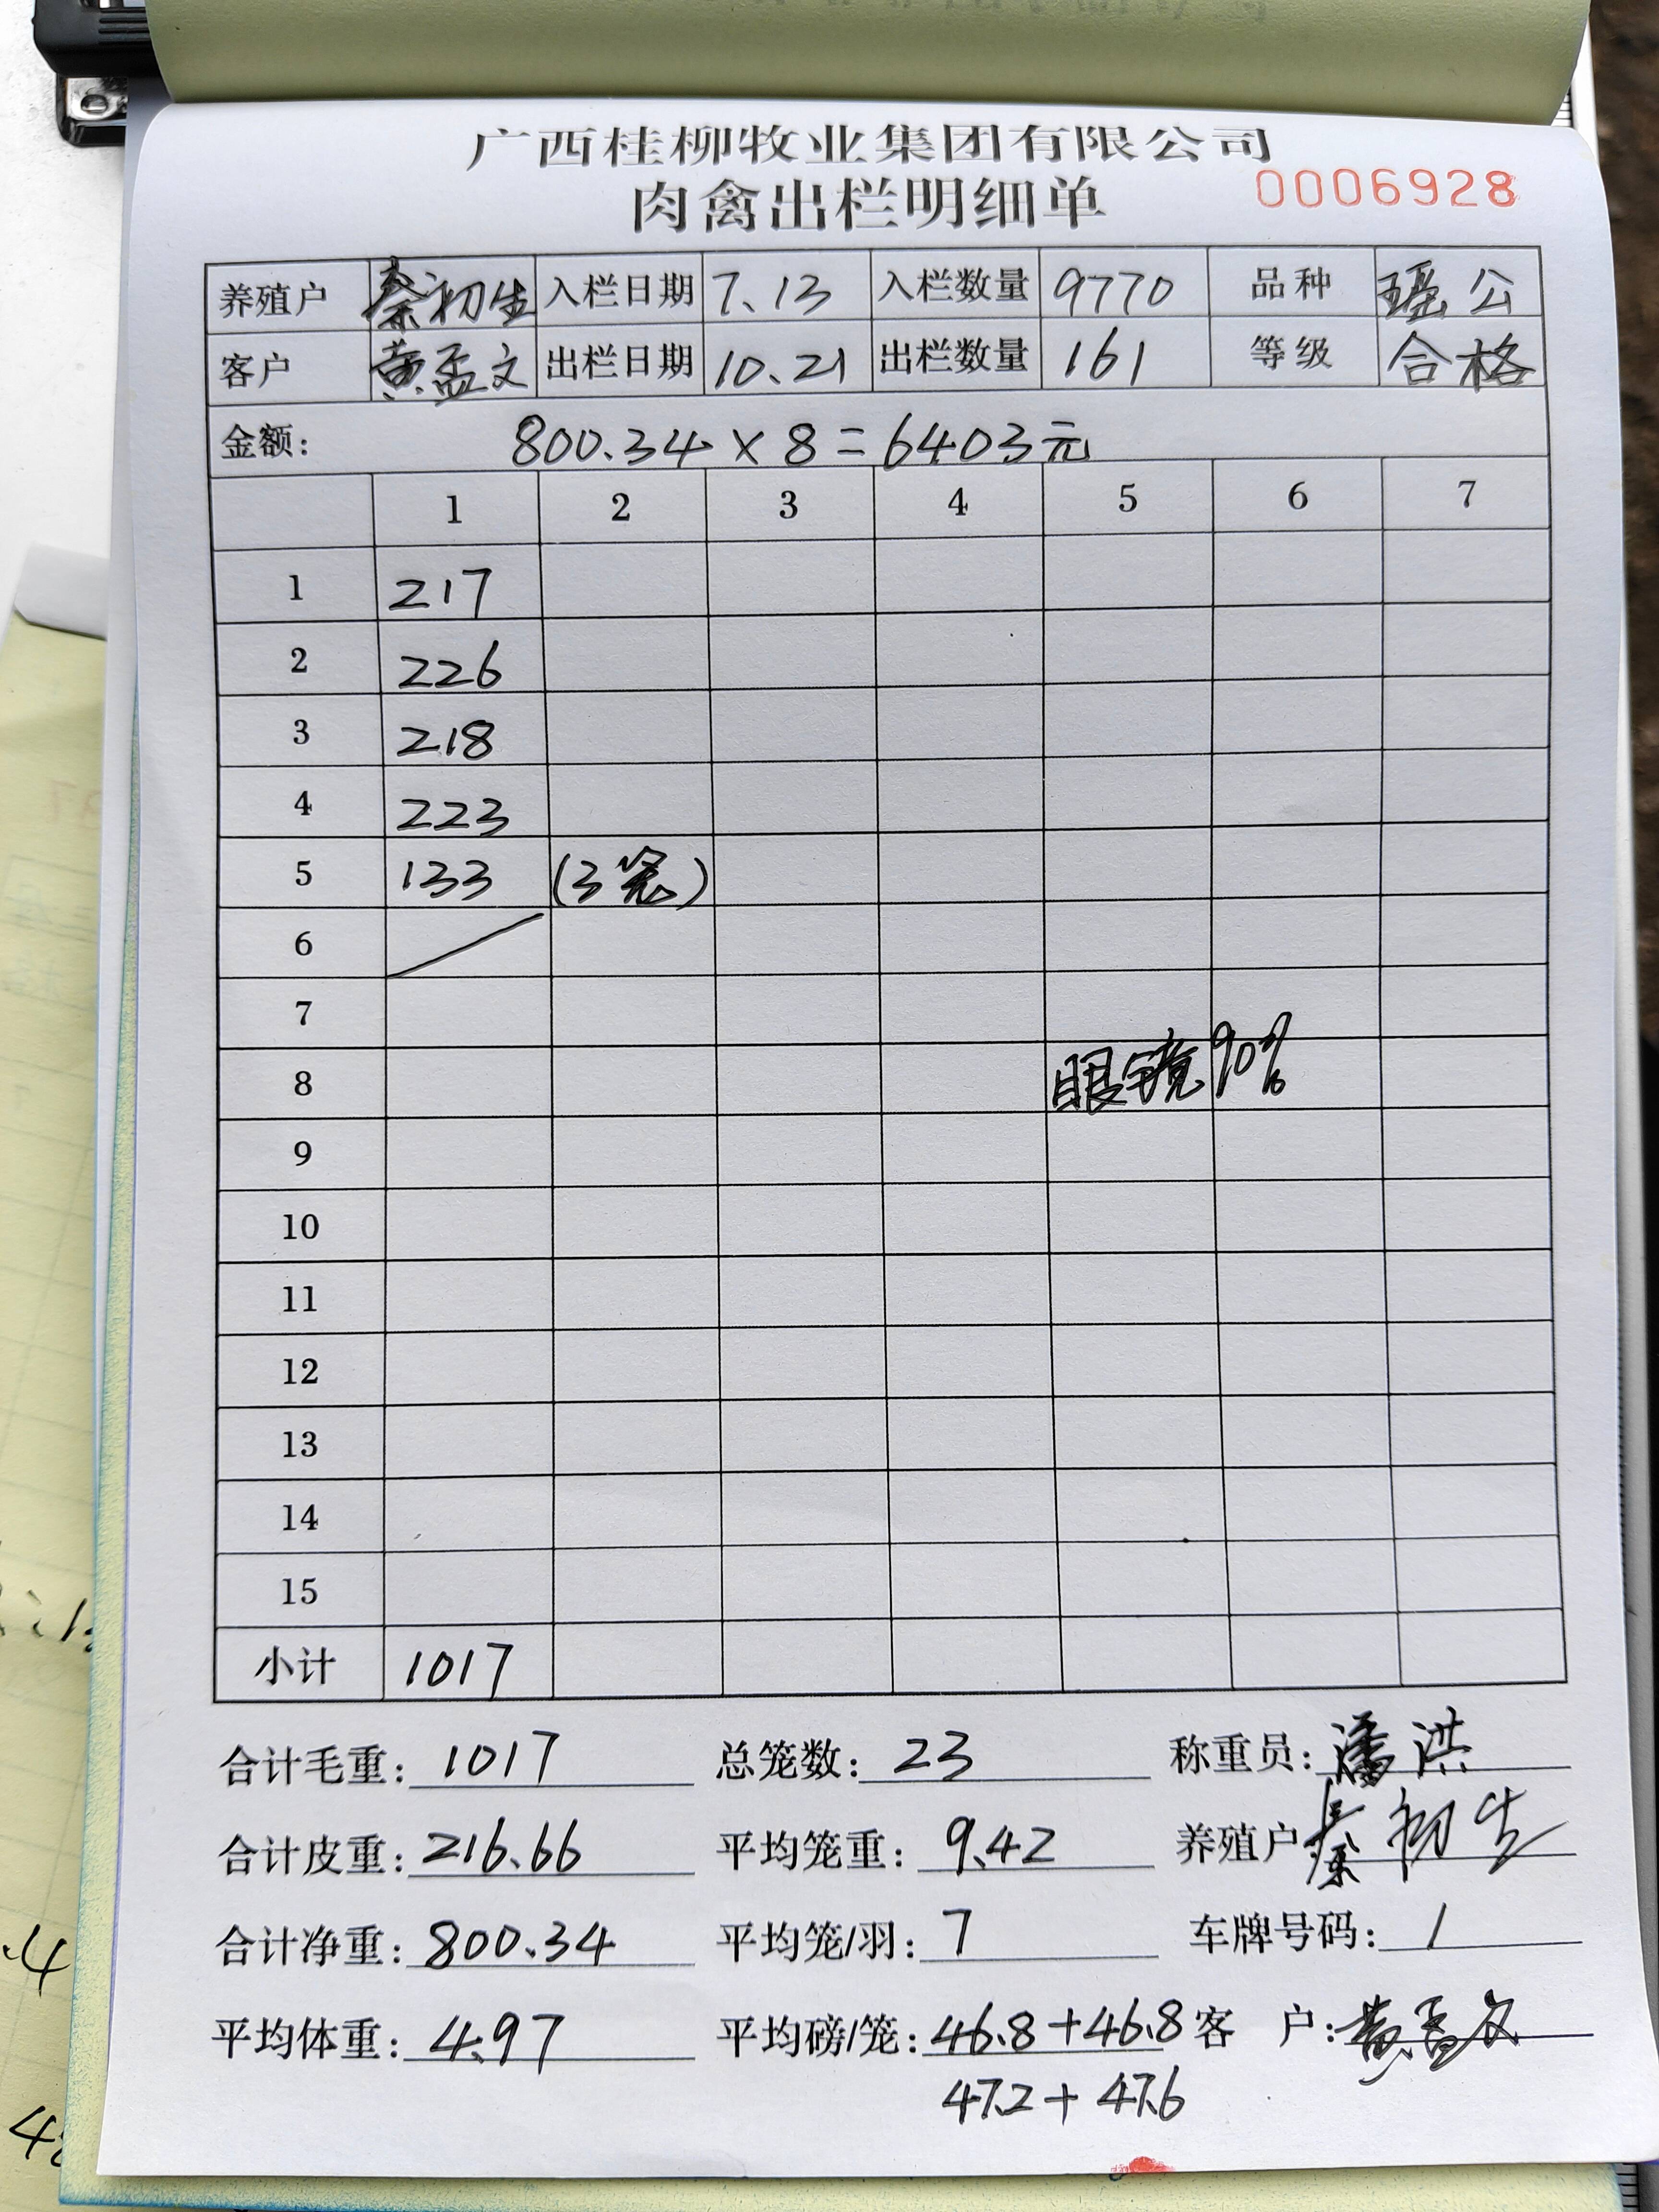 广西桂柳牧业集团有限公司
肉禽出栏明细单 0006928
养殖户 秦初生 入栏日期 7.13 入栏数量 9770 品种 瑶公
客户 黄孟文 出栏日期 10.21 出栏数量 161 等级 合格
金额: 800.34 × 8 = 6403元
1 2 3 4 5 6 7
1 217
2 226
3 218
4 223
5 133 (3笼)
6
7
8 眼镜90%
9
10
11
12
13
14
15
小计 1017
合计毛重: 1017 总笼数: 23 称重员: 潘洪
合计皮重: 216.66 平均笼重: 9.42 养殖户 秦初生
合计净重: 800.34 平均笼/羽: 7 车牌号码: /
平均体重: 4.97 平均磅/笼: 46.8+46.8 客 户: 黄孟文
47.2+47.6